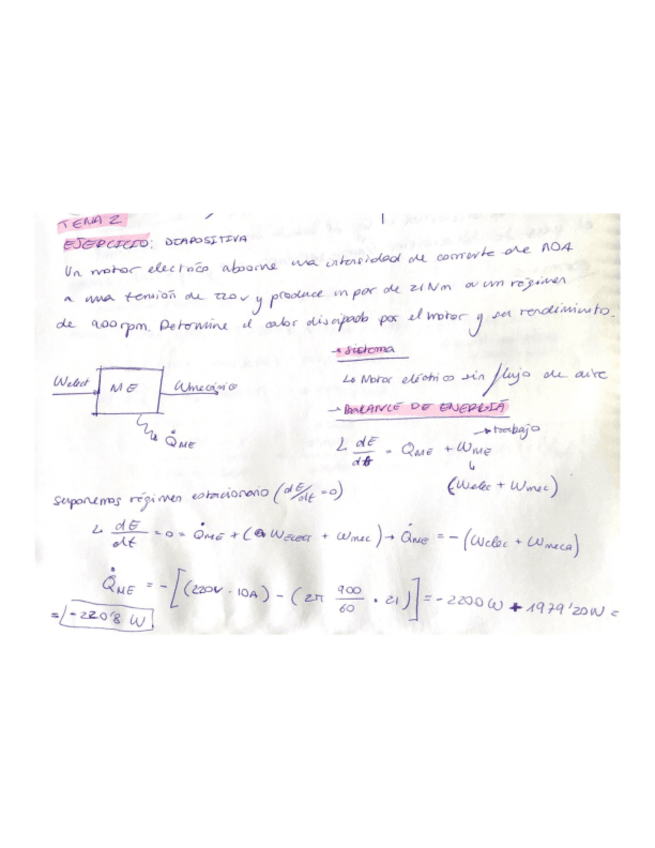 TEMA 2
EJERCICIO: DIAPOSITIVA
Un motor electrico absorve una intensidad de corriente de 10A
a una tensión de 220v y produce un par de 21Nm a un régimen
de 900rpm. Determine el calor discipado por el motor y su rendimiento.
→ sistema
↳ Motor eléctrico sin flujo de aire
Welect ME Wmecánico
Q̇ME
→ BALANCE DE ENERGIA
↳ dE/dt = QME + WME → trabajo
(Welec + Wmec)
suponemos régimen estacionario (dE/dt = 0)
↳ dE/dt = 0 = Q̇ME + (WELECT + Wmec) → Q̇ME = - (Welec + Wmeca)
Q̇ME = - [(220V · 10A) - (2π 900/60 · 21)] = - 2200W + 1979'20W =
= -220'8 W